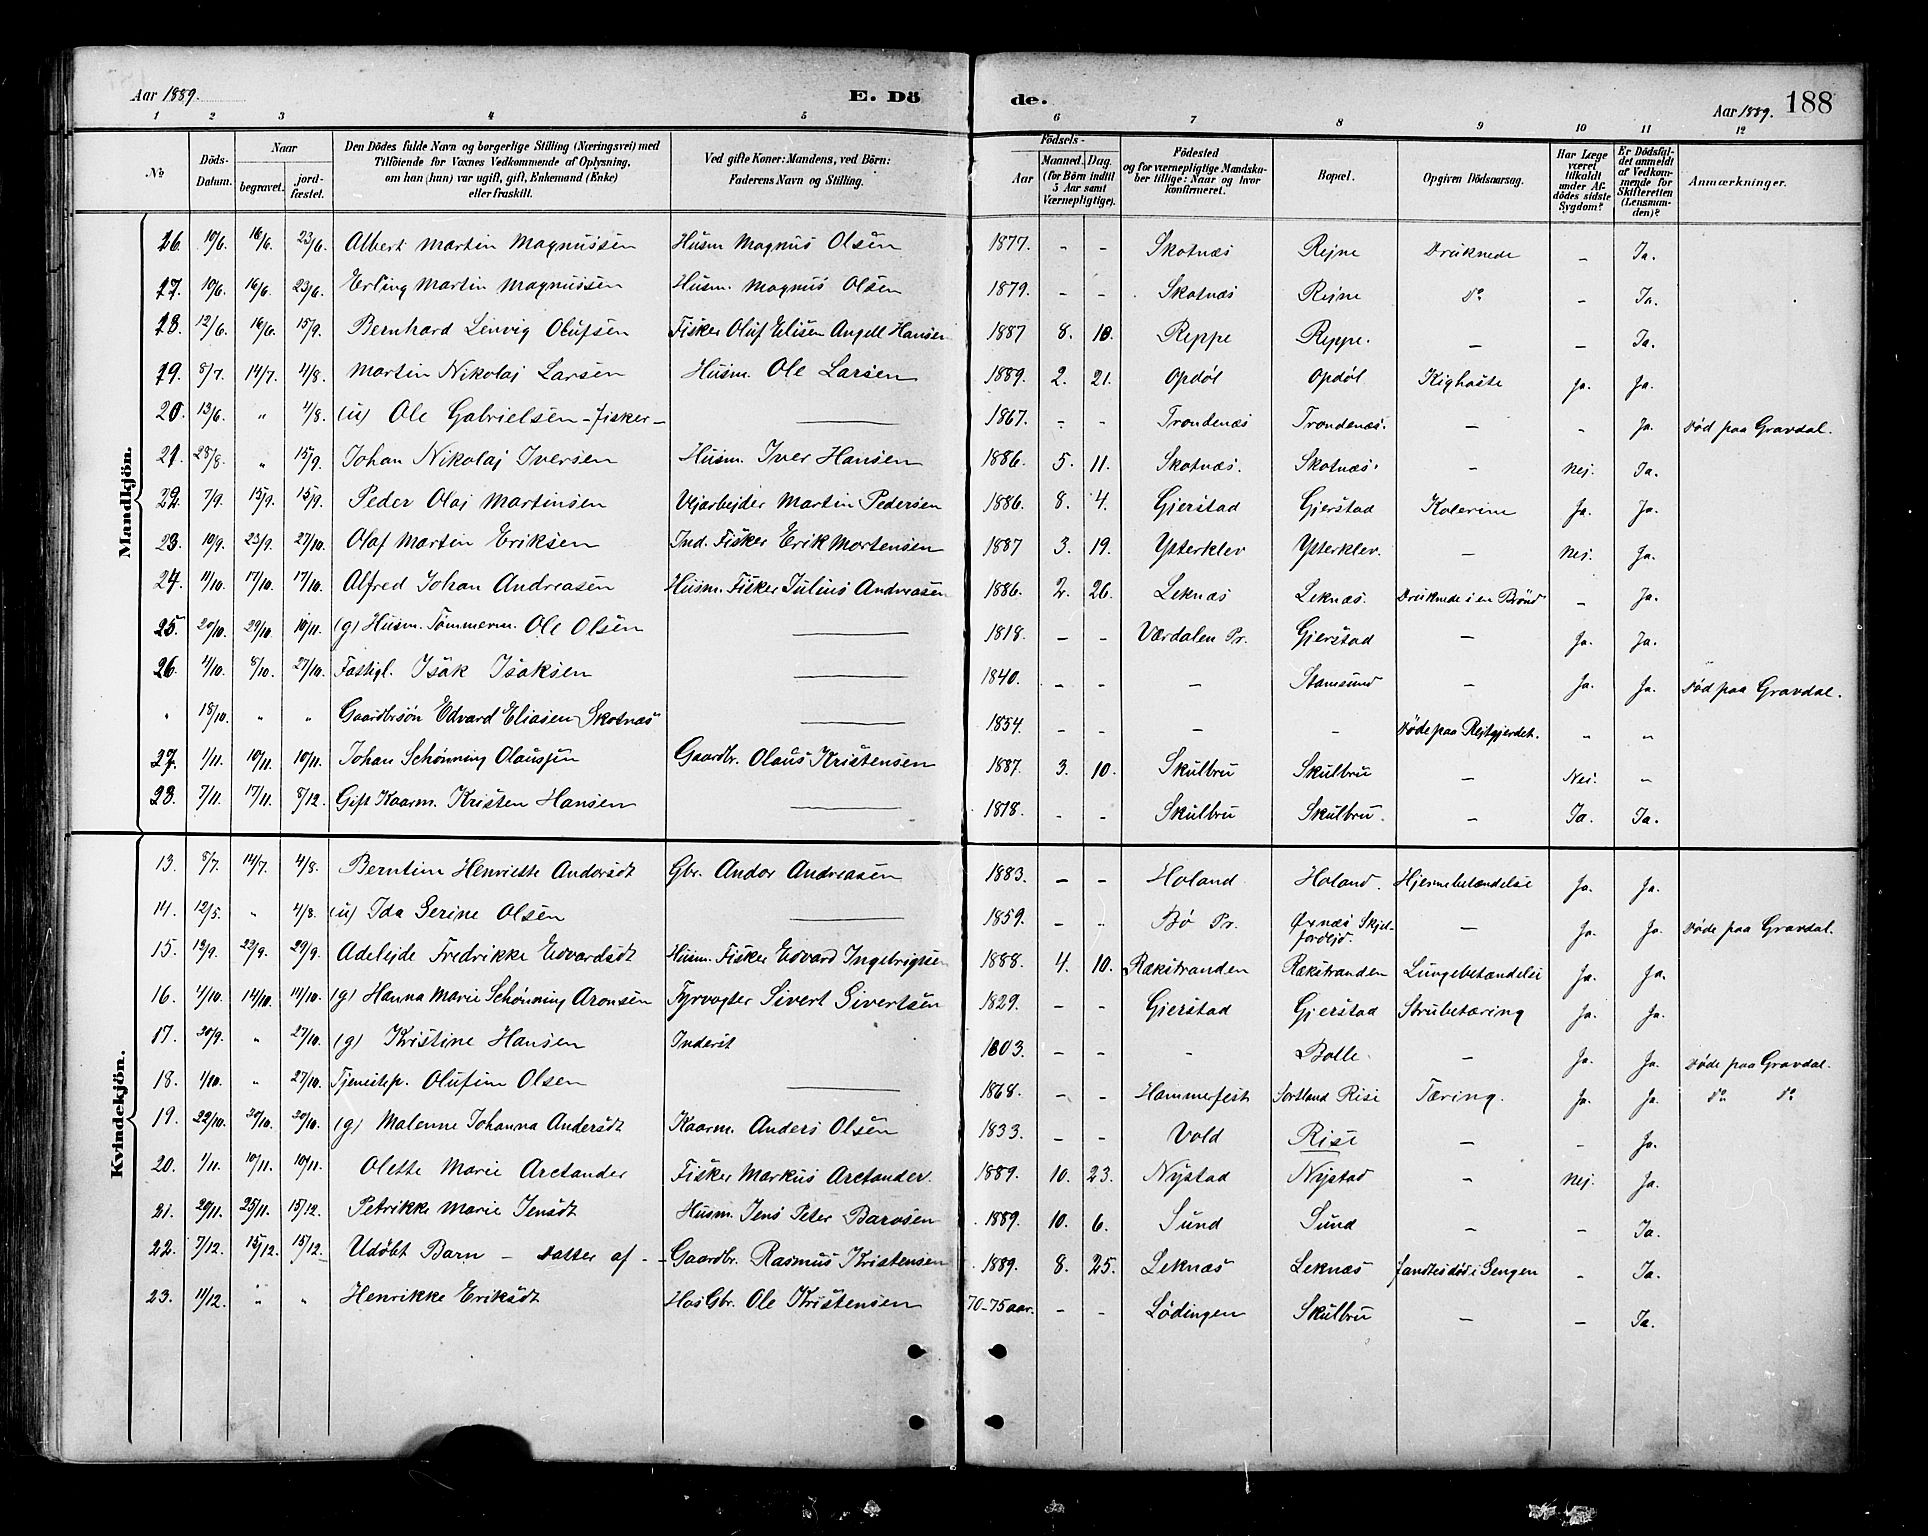 Aar 1889. E. Dö de. Aar 1889. 188
1 2 3 4 5 6 7 8 9 10 11 12
No Döds-Datum. Naar begravet. jordfæstet. Den Dödes fulde Navn og borgerlige Stilling (Næringsvei) med Tilföiende for Voxnes Vedkommende af Oplysning, om han (hun) var ugift, gift, Enkemand (Enke) eller fraskilt. Ved gifte Koner: Mandens, ved Börn: Faderens Navn og Stilling. Födsels- Aar Maaned. Dag. (for Börn indtil 5 Aar samt Værnepligtige). Födested og for værnepligtige Mandskaber tillige: Naar og hvor konfirmeret. Bopæl. Opgiven Dödsaarsag. Har Læge været tilkaldt under Afdödes sidste Sygdom? Er Dödsfaldet anmeldt af Vedkommende for Skifteretten (Lensmanden)? Anmærkninger.
Mandkjön.
16. 10/6. 16/6. 23/6. Albert Martin Magnussen Husm Magnus Olsen 1877. - - Skotnæs Rejne Druknede - Ja.
17. 10/6. 16/6. 23/6. Erling Martin Magnussen Husm. Magnus Olsen 1879. - - Skotnæs Rejne Do - Ja.
18. 12/6. 16/6. 15/9. Bernhard Lenvig Olufsen Fisker Oluf Elisen Angell Hansen 1887 8. 10. Reppe Reppe. - - Ja.
19. 8/7. 14/7. 4/8. Martin Nikolaj Larsen Husm. Ole Larsen 1889. 2. 21. Opdøl Opdøl Kighoste Ja. Ja.
20. 13/6. " 4/8. (u) Ole Gabrielsen - Fisker - 1867. - - Trondenæs Trondenæs. - - Ja. Død paa Gravdal.
21. 28/8. " 15/9. Johan Nikolaj Iversen Husm. Iver Hansen 1886. 5. 11. Skotnæs. Skotnæs. - Nej. Ja.
22. 7/9. 15/9. 15/9. Peder Olaj Martinsen Vejarbejder Martin Pedersen 1886. 8. 4. Gjerstad Gjerstad Kolerine Ja. Ja.
23. 10/9. 23/9. 27/10. Olaf Martin Eriksen Ind. Fisker Erik Mortensen 1887 3. 19. Ysterklev Ysterklev. - Nej. Ja.
24. 11/10. 17/10. 17/10. Alfred Johan Andreasen Husm. Fisker Julius Andreasen 1886. 2. 26. Leknæs Leknæs. Druknede i en Brønd - Ja.
25. 20/10. 29/10. 10/11. (g) Husm. Tømmerm. Ole Olsen 1818. - - Værdalen Pr. Gjerstad - Ja. Ja.
26. 4/10. 8/10. 27/10. Fattigl. Isak Isaksen 1840. - - - Stamsund - Ja. Ja. Død paa Gravdal.
" 18/10. " " Gaardbrsøn Edvard Eliasen Skotnæs 1854. - - Døde paa Rejtgjerdet. " "
27. 1/11. 10/11. 10/11. Johan Schønning Olaussen Gaardbr. Olaus Kristensen 1887. 3. 10. Skulbru Skulbru - Nei. -
28. 7/11. 17/11. 8/12. Gift Kaarm. Kristen Hansen 1818. - - Skulbru Skulbru. - Ja. Ja.
Kvindekjön.
13. 8/7. 14/7. 4/8. Berntine Henriette Andorsdt Gbr. Andor Andreasen 1883. - - Holand Holand. Hjernebetændelse Ja. Ja.
14. 12/5. " 4/8. (u) Ida Serine Olsen 1859. - - Bø Pr. Ørnæs Skjelfordejd. - Ja. Ja. Døde paa Gravdal.
15. 12/9. 22/9. 29/9. Adelejde Fredrikke Edvardsdt Husm. Fisker Edvard Ingebrigtsen 1888. 4. 10. Rækstranden Rækstranden Lungebetændelse Ja. Ja.
16. 4/10. 14/10. 14/10. (g) Hanna Marie Schønning Aronsen Fyrvogter Sivert Sivertsen 1829. - - Gjerstad Gjerstad Strubetæring Ja. Ja.
17. 30/9. " 27/10. (g) Kristine Hansen Inderst 1803. - - - Bolle. - Ja. Ja. Døde paa Gravdal.
18. 4/10. " 27/10. Tjenestep. Olufine Olsen 1868. - - Hammerfest Sortland Rise Tæring. Ja. Ja. Do Do
19. 22/10. 30/10. 30/10. (g) Malenne Johanna Andersdt Kaarm. Anders Olsen 1833. - - Vold Rise - - Ja.
20. 1/11. 10/11. 10/11. Olette Marie Arctander Fisker Markus Arctander. 1889. 10. 23. Nystad Nystad - Nej. Ja.
21. 20/11. 25/11. 15/12. Petrikke Marie Jensdt Husm. Jens Peter Barosen 1889. 10. 6. Sund Sund - - Ja.
22. 7/12. 15/12. 15/12. Udøbt Barn - Datter af - - Gaardbr. Rasmus Kristensen 1889. 8. 25. Leknæs Leknæs fandtes død i Sengen - Ja.
23. 11/12. " " Henrikke Eriksdt Hos Gbr. Ole Kristensen 70-75 aar. - - Lødingen Skulbru - - Ja.